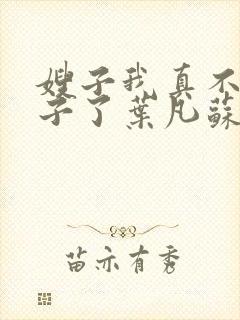 嫂子我真不
子了葉凡蘇
苗亦有秀